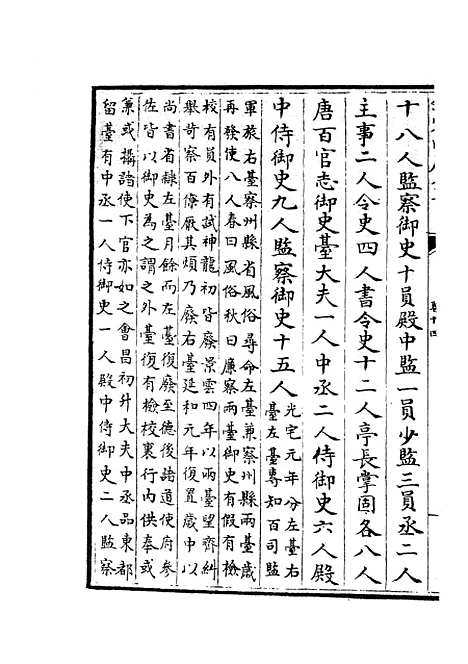 十八人監察御史十員殿中監一員少監三員丞二人
主事二人令史四人書令史十二人亭長掌固各八人
唐百官志御史臺大夫一人中丞二人侍御史六人殿
中侍御史九人監察御史十五人
光宅元年分左臺右
臺左臺專知百司監
軍旅右臺察州縣省風俗尋命左臺兼察州縣兩臺歲
再發使八人春曰風俗秋曰廉察兩臺御史有假有檢
校有員外有試神龍初皆廢景雲四年以兩臺望齊糾
舉苛察百僚厭其煩乃廢右臺延和元年復置歲中以
尚書省隸左臺月餘而左臺復廢至德後諸道使府參
佐皆以御史為之謂之外臺復有檢校裏行内供奉或
兼或攝諸使下官亦如之會昌初升大夫中丞品東都
留臺有中丞一人侍御史一人殿中侍御史二人監察